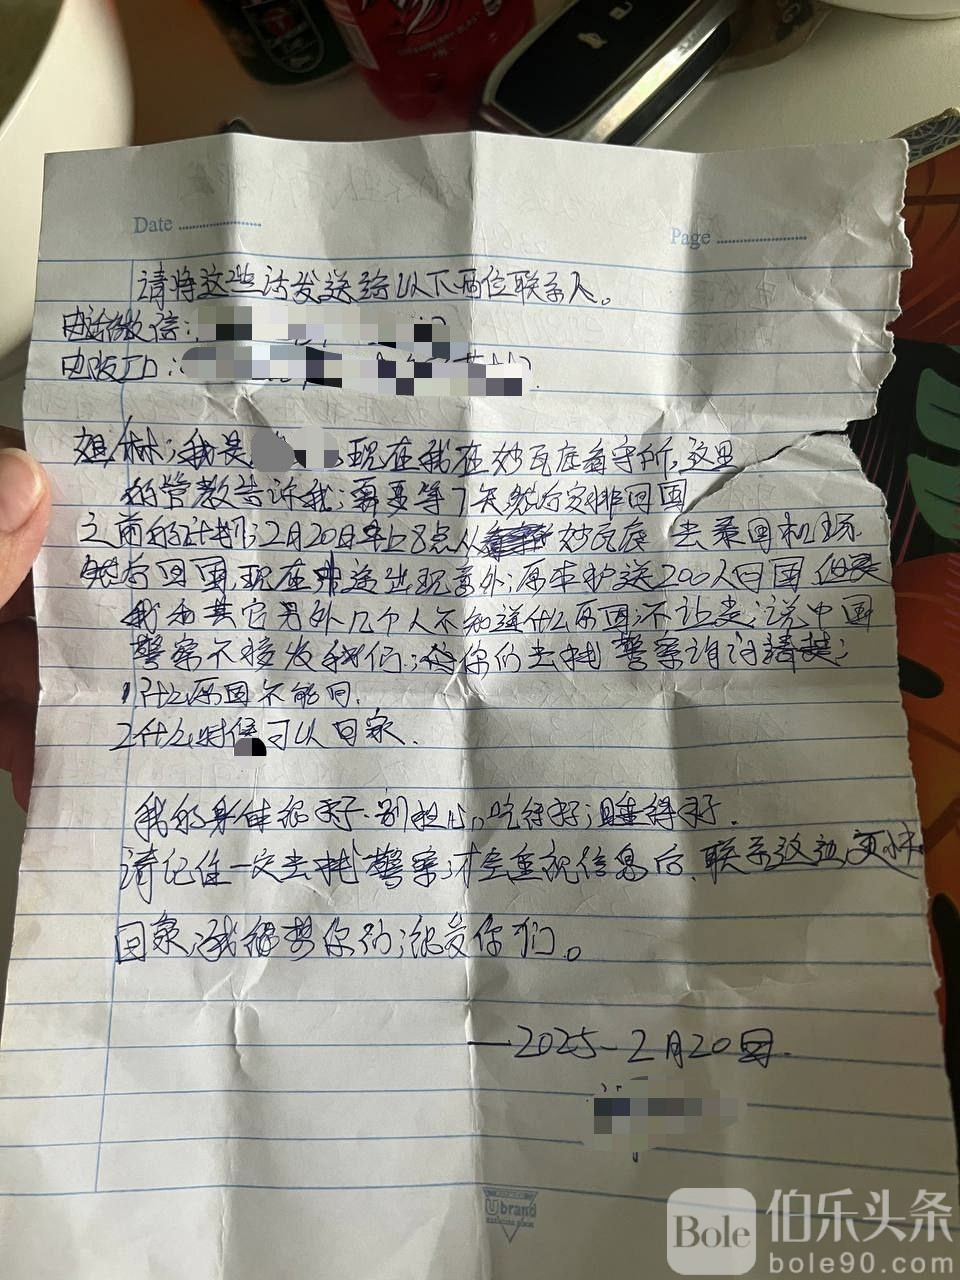 Date
Page
请将这些话发送给以下两位联系人。
电话微信:
电话ID:
姐/林;我是 现在我在妙瓦底看守所,这里
的管教告诉我;需要等7天然后安排回国
之前的计划;2月20日早上8点从 妙瓦底 去泰国机场
然后回国,现在中途出现意外;原本护送200人回国 但是
我和其它另外几个人不知道什么原因;不让走;说中国
警察不接收我们; 你们去找警察询问 ;
1什么原因不能回.
2什么时候可以回家.
我的身体很好.别担心,吃得好;睡得好.
请记住一定去找警察;才会重视信息后,联系这边,更快
回家,我很想你们;很爱你们。
—2025-2月20日.
Ubrand
Bole
伯乐头条
bole90.com